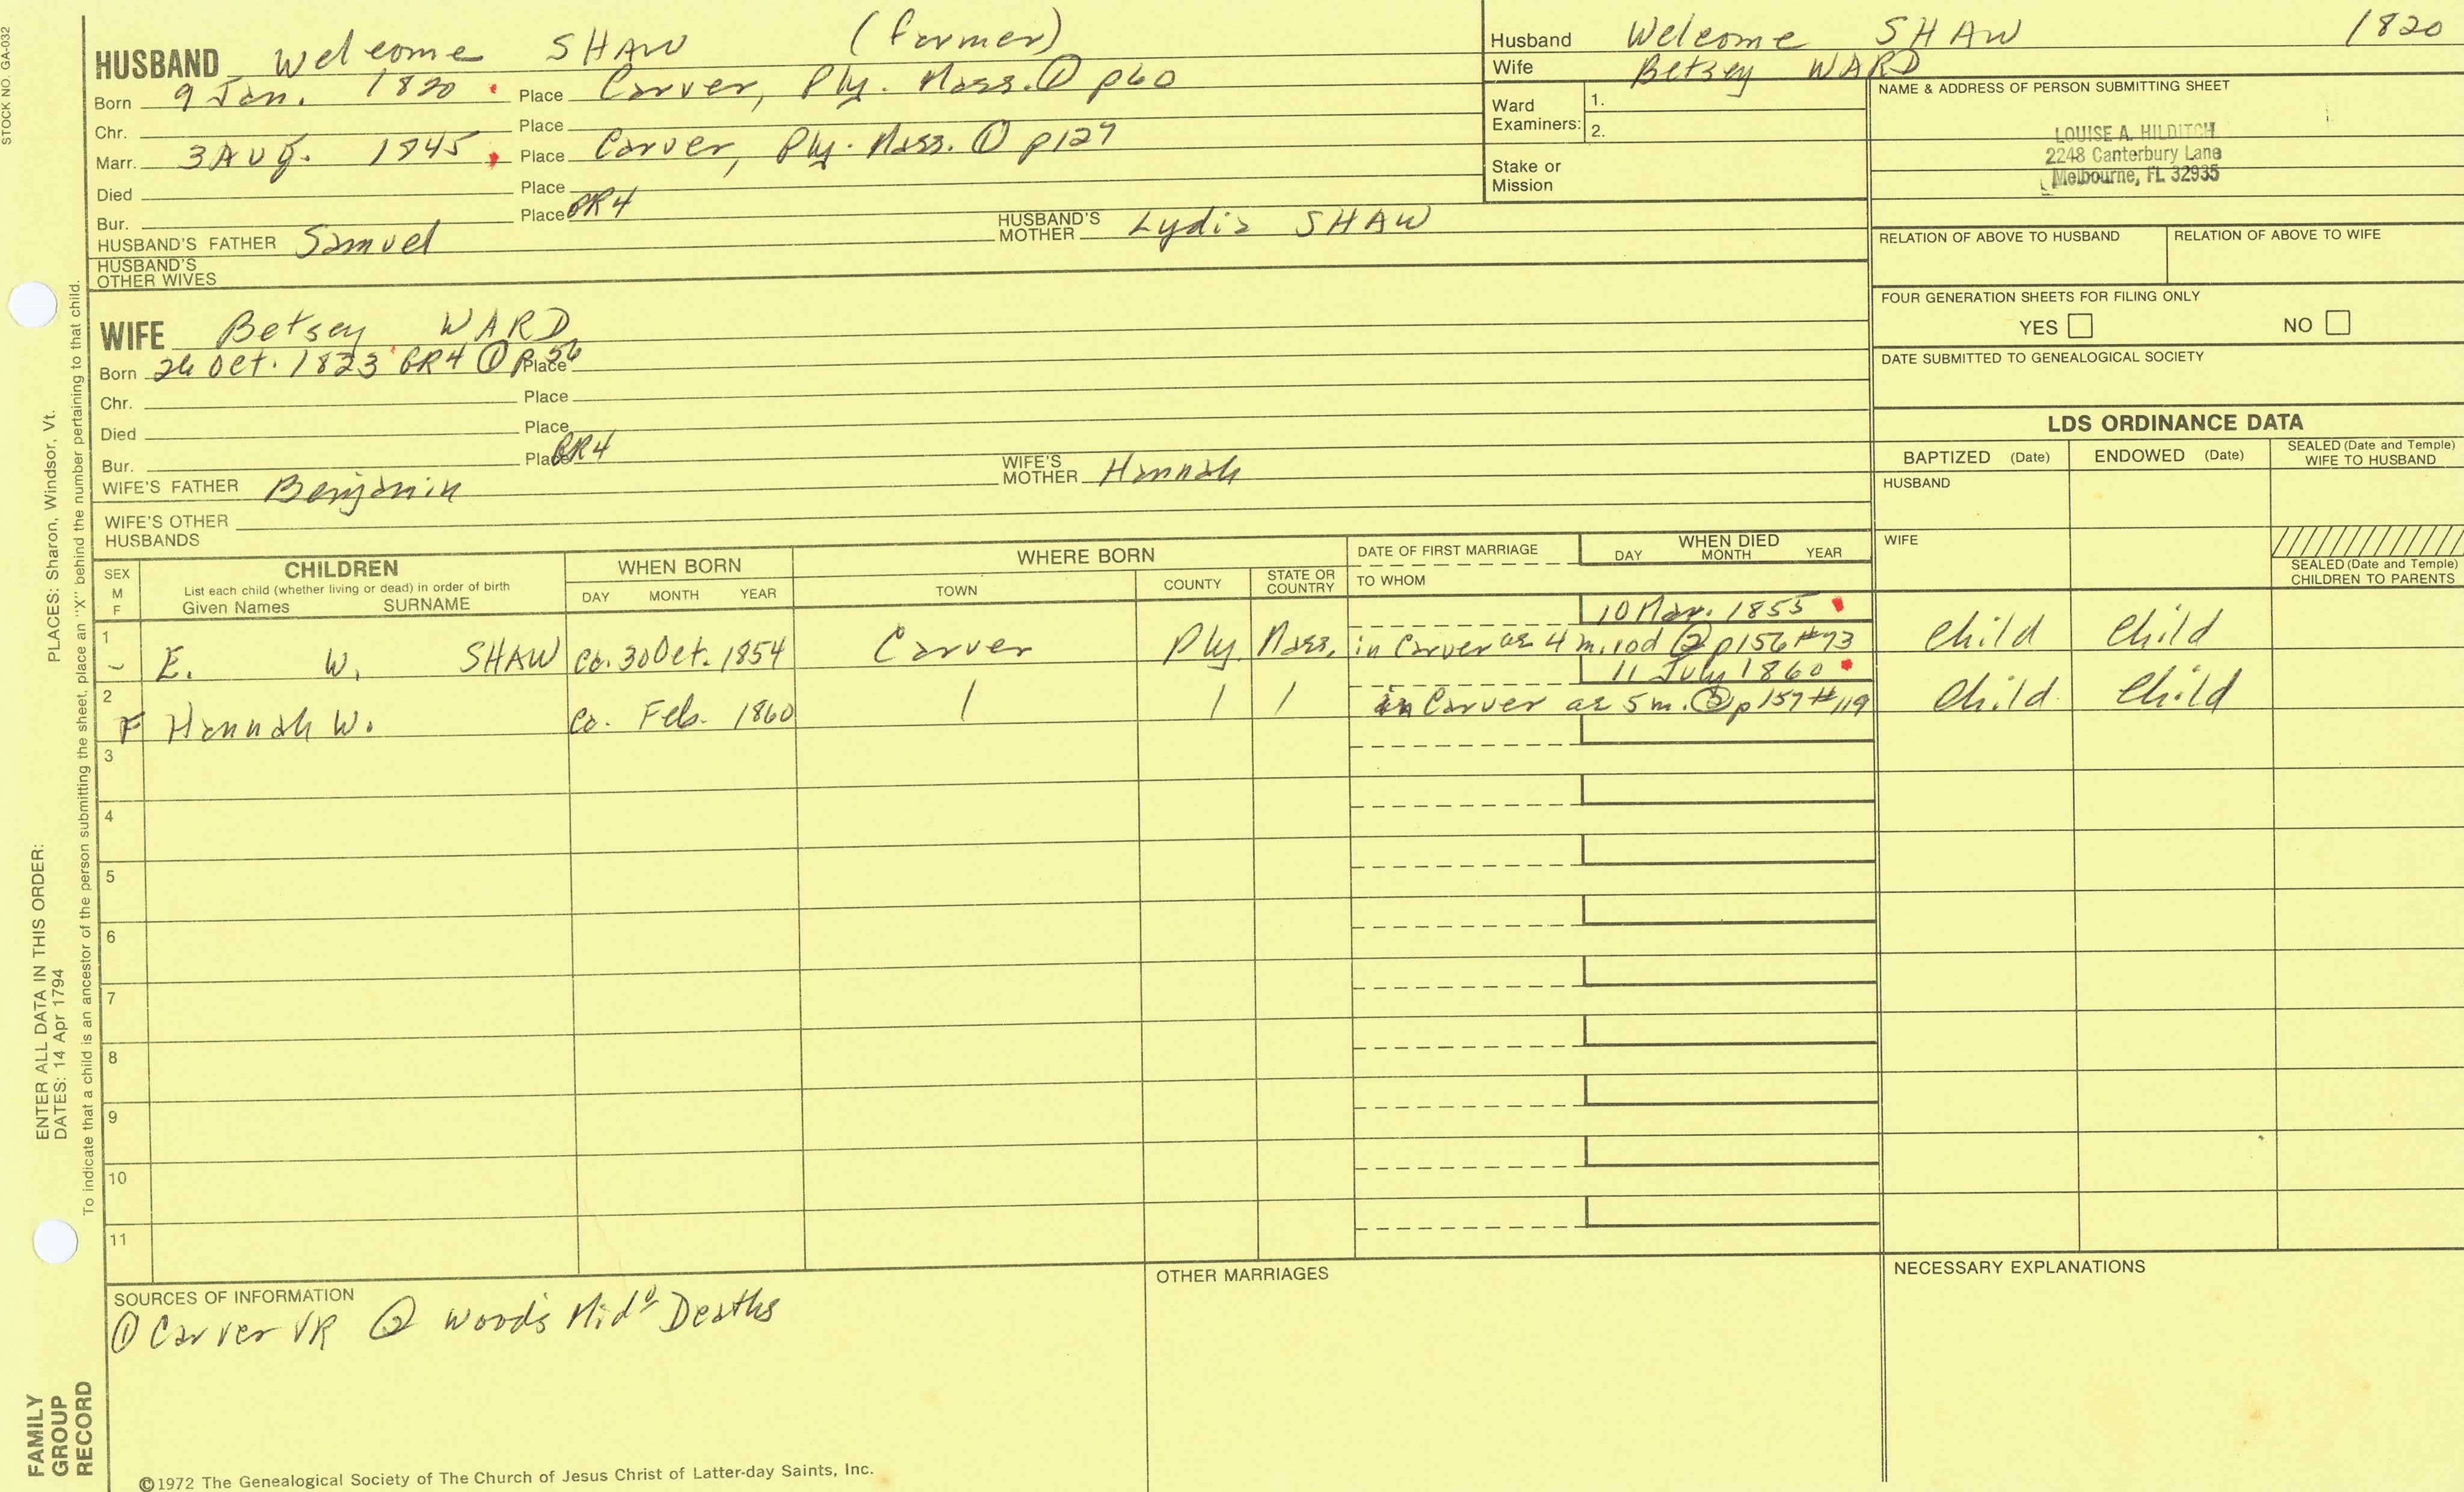 STOCK NO. GA-032
HUSBAND Welcome SHAW (farmer)
Born 9 Jan. 1820 Place Carver, Ply. Mass. ① p60
Chr. Place
Marr. 3 Aug. 1845 Place Carver, Ply. Mass. ① p127
Died Place
Bur. Place GR4
HUSBAND'S FATHER Samuel HUSBAND'S MOTHER Lydia SHAW
HUSBAND'S OTHER WIVES
WIFE Betsey WARD
Born 26 Oct. 1823 GR4 ① p 56 Place
Chr. Place
Died Place
Bur. Place GR4
WIFE'S FATHER Benjamin WIFE'S MOTHER Hannah
WIFE'S OTHER HUSBANDS
Husband Welcome SHAW 1820
Wife Betsey WARD
Ward Examiners: 1.
2.
Stake or Mission
NAME & ADDRESS OF PERSON SUBMITTING SHEET
LOUISE A. HILDITCH
2248 Canterbury Lane
Melbourne, FL 32935
RELATION OF ABOVE TO HUSBAND RELATION OF ABOVE TO WIFE
FOUR GENERATION SHEETS FOR FILING ONLY
YES NO
DATE SUBMITTED TO GENEALOGICAL SOCIETY
LDS ORDINANCE DATA
BAPTIZED (Date) ENDOWED (Date) SEALED (Date and Temple) WIFE TO HUSBAND
HUSBAND
WIFE
SEALED (Date and Temple) CHILDREN TO PARENTS
SEX M F
CHILDREN
List each child (whether living or dead) in order of birth
Given Names SURNAME
WHEN BORN
DAY MONTH YEAR
WHERE BORN
TOWN COUNTY STATE OR COUNTRY
DATE OF FIRST MARRIAGE
TO WHOM
WHEN DIED
DAY MONTH YEAR
10 Mar. 1855
1 E. W. SHAW ca. 30 Oct. 1854 Carver Ply. Mass. in Carver ae 4 m. 10d ② p156 #73 child child
11 July 1860
2 F Hannah W. ca. Feb. 1860 / / / in Carver ae 5 m. ② p157 #119 child child
3
4
5
6
7
8
9
10
11
SOURCES OF INFORMATION
① Carver VR ② Wood's Mid° Deaths
OTHER MARRIAGES
NECESSARY EXPLANATIONS
©1972 The Genealogical Society of The Church of Jesus Christ of Latter-day Saints, Inc.
FAMILY GROUP RECORD
ENTER ALL DATA IN THIS ORDER:
DATES: 14 Apr 1794
PLACES: Sharon, Windsor, Vt.
To indicate that a child is an ancestor of the person submitting the sheet, place an "X" behind the number pertaining to that child.